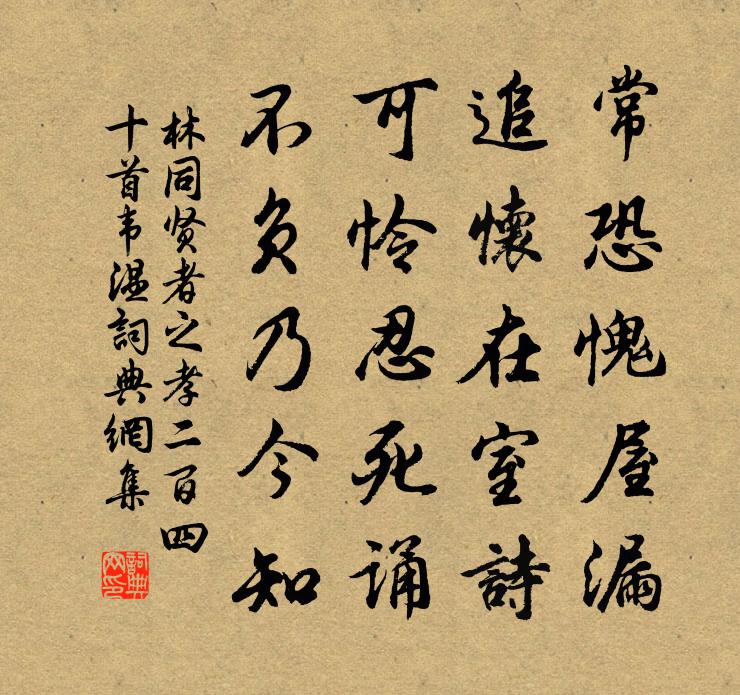 常恐愧屋漏
追懷在室詩
可怜忍死诵
不负乃今知
林同贤者之孝二百四
十首韦温詞典網集
詞典
网印